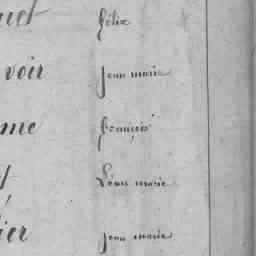 uet félix
voir jean marie
me françois
t Léon marie
ier jean marie